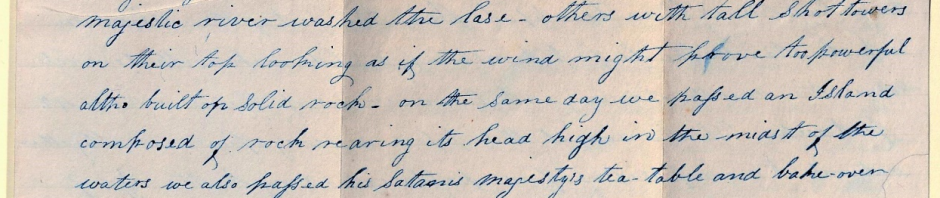 majestic river washed the base - others with tall shot towers
on their top looking as if the wind might prove too powerful
altho built op solid rock - on the same day we passed an Island
composed of rock rearing its head high in the midst of the
waters we also passed his Satanis majesty's tea-table and bake-oven